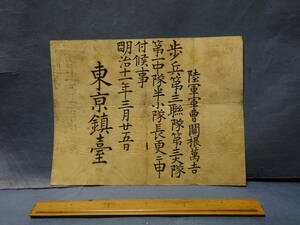 陸軍軍曹關根萬吉
歩兵第三聯隊第三大隊
第一中隊半小隊長更ニ申
付候事
明治十一年三月廿五日
東京鎮臺